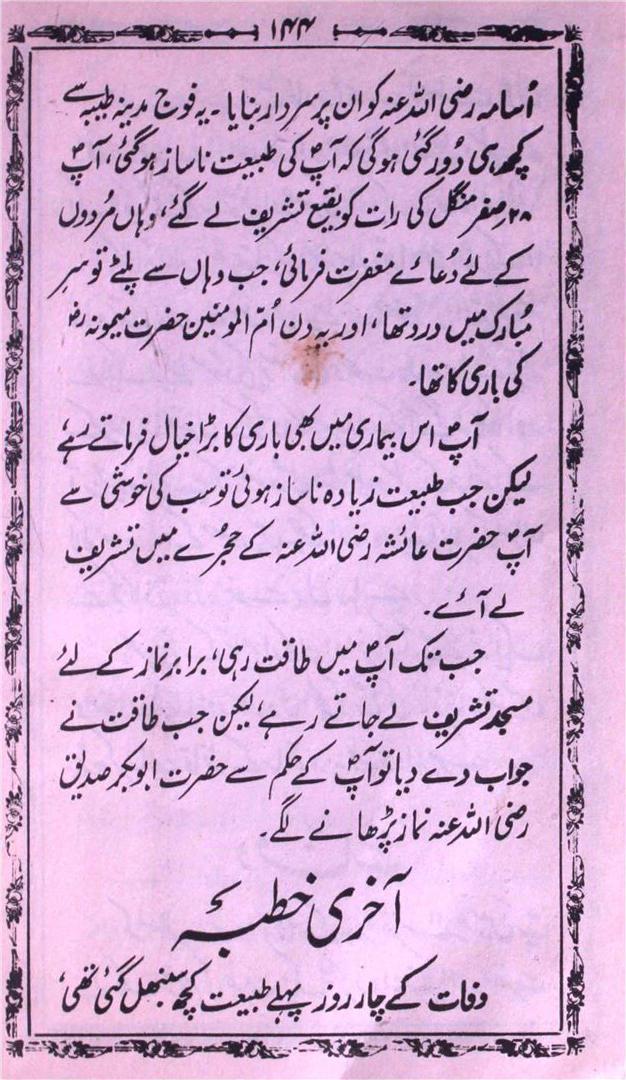 ۱۴۴
اُسامہ رضی اللہ عنہ کو ان پر سردار بنایا۔ یہ فوج مدینہ طیبہ سے
کچھ ہی دُور گئی ہوگی کہ آپؐ کی طبیعت ناساز ہوگئی، آپؐ
۲۸ صفر منگل کی رات کو بقیع تشریف لے گئے، وہاں مُردوں
کے لئے دُعائے مغفرت فرمائی، جب وہاں سے پلٹے تو سر
مُبارک میں درد تھا، اور یہ دن اُمّ المومنین حضرت میمونہ رضؓ
کی باری کا تھا۔
آپؐ اس بیماری میں بھی باری کا بڑا خیال فرماتے رہے
لیکن جب طبیعت زیادہ ناساز ہوئی تو سب کی خوشی سے
آپؐ حضرت عائشہ رضی اللہ عنہ کے حجرُے میں تشریف
لے آئے۔
جب تک آپؐ میں طاقت رہی، برابر نماز کے لئے
مسجد تشریف لے جاتے رہے، لیکن جب طاقت نے
جواب دے دیا تو آپؐ کے حکم سے حضرت ابوبکر صدیق
رضی اللہ عنہ نماز پڑھانے لگے۔
آخری خطبہ
وفات کے چار روز پہلے طبیعت کچھ سنبھل گئی تھی،